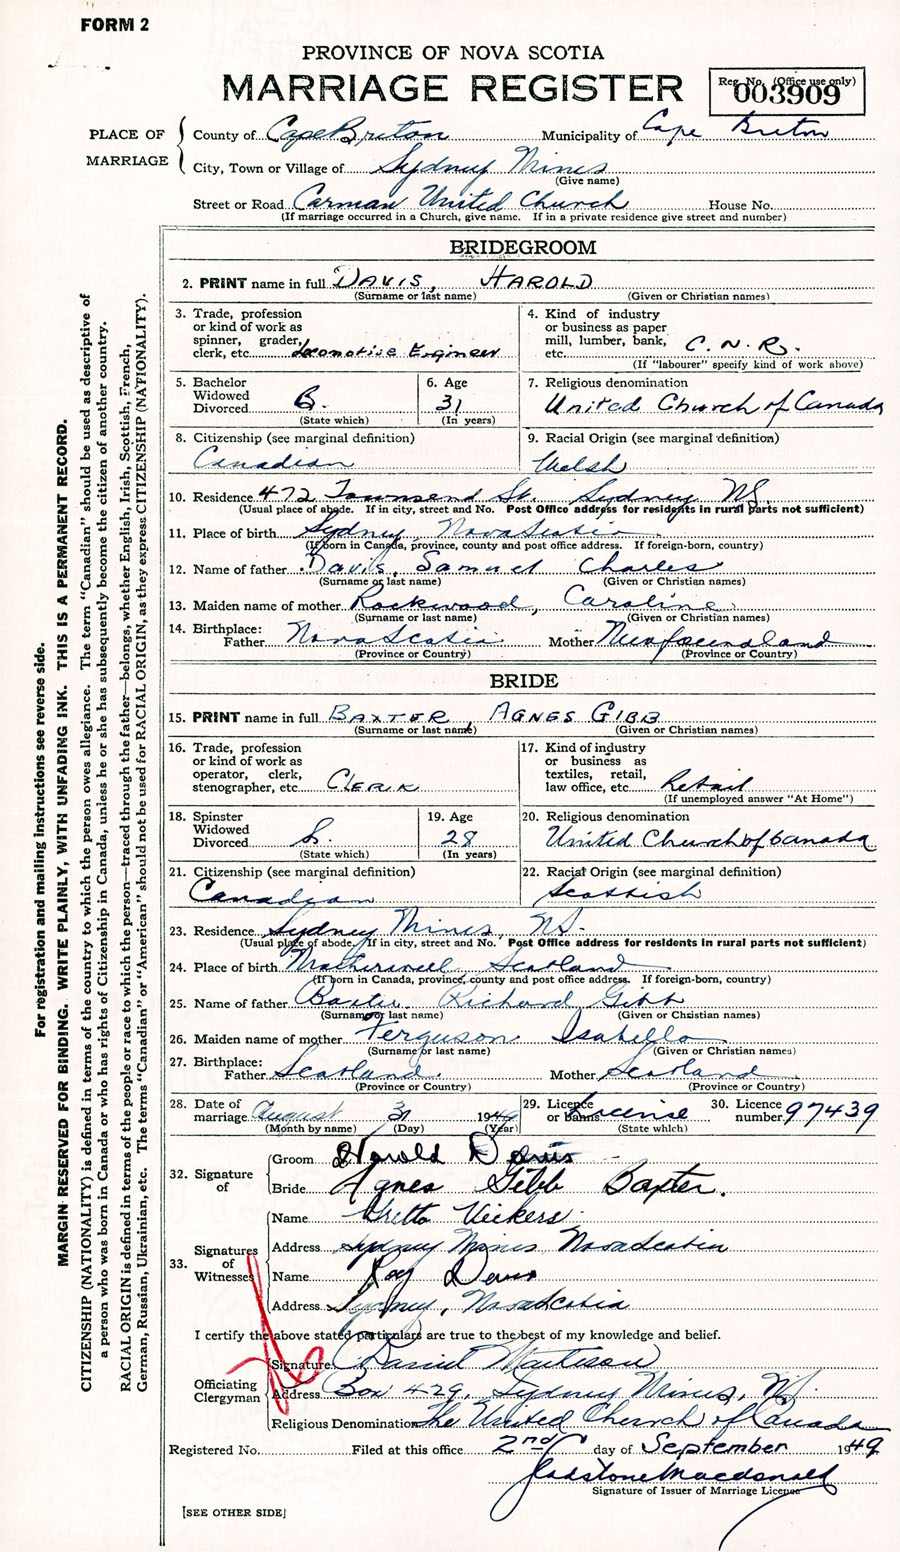 FORM 2
PROVINCE OF NOVA SCOTIA
MARRIAGE REGISTER
Reg. No. (Office use only)
003909
PLACE OF MARRIAGE
County of Cape Breton Municipality of Cape Breton
City, Town or Village of Sydney Mines
(Give name)
Street or Road Carman United Church House No.
(If marriage occurred in a Church, give name. If in a private residence give street and number)
BRIDEGROOM
2. PRINT name in full DAVIS, HAROLD
(Surname or last name) (Given or Christian names)
3. Trade, profession
or kind of work as
spinner, grader,
clerk, etc. Locomotive Engineer
4. Kind of industry
or business as paper
mill, lumber, bank,
etc. C.N.R.
(If "labourer" specify kind of work above)
5. Bachelor
Widowed
Divorced B.
(State which)
6. Age
31
(In years)
7. Religious denomination
United Church of Canada
8. Citizenship (see marginal definition)
Canadian
9. Racial Origin (see marginal definition)
Welsh
10. Residence 472 Townsend St. Sydney NS
(Usual place of abode. If in city, street and No. Post Office address for residents in rural parts not sufficient)
11. Place of birth Sydney, Nova Scotia
(If born in Canada, province, county and post office address. If foreign-born, country)
12. Name of father Davis, Samuel Charles
(Surname or last name) (Given or Christian names)
13. Maiden name of mother Rockwood, Caroline
(Surname or last name) (Given or Christian names)
14. Birthplace:
Father Nova Scotia Mother Newfoundland
(Province or Country) (Province or Country)
BRIDE
15. PRINT name in full BAXTER, AGNES GIBB
(Surname or last name) (Given or Christian names)
16. Trade, profession
or kind of work as
operator, clerk,
stenographer, etc. CLERK
17. Kind of industry
or business as
textiles, retail,
law office, etc. Retail
(If unemployed answer "At Home")
18. Spinster
Widowed
Divorced S.
(State which)
19. Age
28
(In years)
20. Religious denomination
United Church of Canada
21. Citizenship (see marginal definition)
Canadian
22. Racial Origin (see marginal definition)
Scottish
23. Residence Sydney Mines, NS.
(Usual place of abode. If in city, street and No. Post Office address for residents in rural parts not sufficient)
24. Place of birth Motherwell, Scotland
(If born in Canada, province, county and post office address. If foreign-born, country)
25. Name of father Baxter Richard Gibb
(Surname or last name) (Given or Christian names)
26. Maiden name of mother Ferguson Isabella
(Surname or last name) (Given or Christian names)
27. Birthplace:
Father Scotland. Mother Scotland
(Province or Country) (Province or Country)
28. Date of
marriage August 31 1949
(Month by name) (Day) (Year)
29. Licence
or banns License
(State which)
30. Licence
number 97439
32. Signature of
Groom Harold Davis
Bride Agnes Gibb Baxter.
33. Signatures of Witnesses
Name Vickers
Address Sydney Mines Nova Scotia
Name Roy Davis
Address Sydney, Nova Scotia
I certify the above stated particulars are true to the best of my knowledge and belief.
Officiating Clergyman
Signature Daniel
Address Box 429, Sydney Mines, NS.
Religious Denomination The United Church of Canada
Registered No. Filed at this office 2nd day of September 1949
Gladstone Macdonald
Signature of Issuer of Marriage License
[SEE OTHER SIDE]
For registration and mailing instructions see reverse side.
MARGIN RESERVED FOR BINDING. WRITE PLAINLY, WITH UNFADING INK. THIS IS A PERMANENT RECORD.
CITIZENSHIP (NATIONALITY) is defined in terms of the country to which the person owes allegiance. The term "Canadian" should be used as descriptive of
a person who was born in Canada or who has rights of Citizenship in Canada, unless he or she has subsequently become the citizen of another country.
RACIAL ORIGIN is defined in terms of the people or race to which the person—traced through the father—belongs, whether English, Irish, Scottish, French,
German, Russian, Ukrainian, etc. The terms "Canadian" or "American" should not be used for RACIAL ORIGIN, as they express CITIZENSHIP (NATIONALITY).